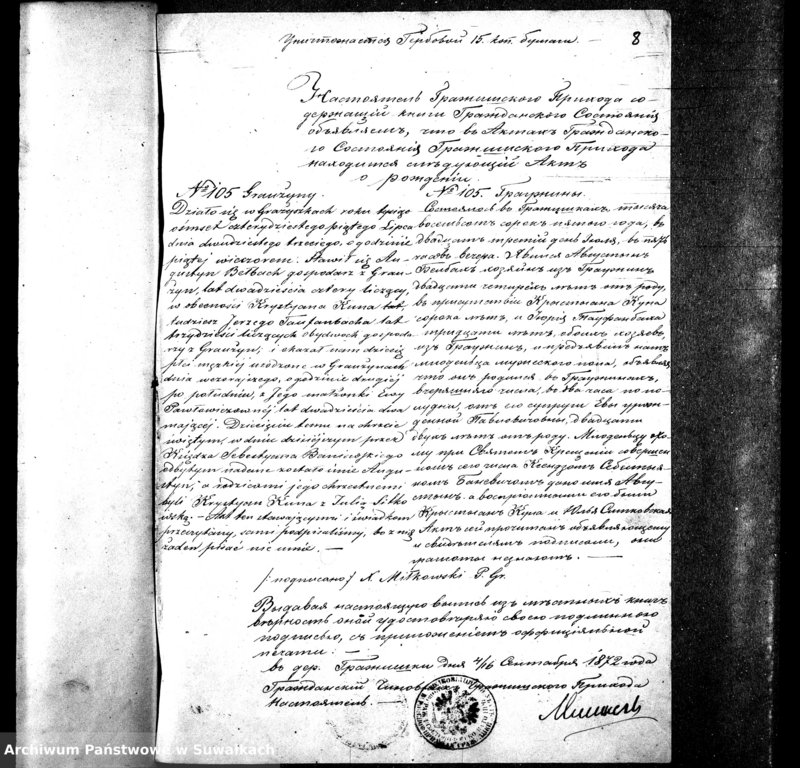 Уничтожается Гербовой 15. коп. бумаги. — 8
Настоятель Гражишского Прихода со-
держащій книги Гражданскаго Состоянія
объявляем, что въ Актах Гражданска-
го Состоянія Гражишского Прихода
находится слѣдующій Актъ
о рожденіи.
№ 105 Graużyny.
Działo się w Grażyszkach roku tysiąc
ośmset czterydziestego piątego Lipca
dnia dwudziestego trzeciego, o godzinie
piątej wieczorem. Stawił się Au-
gustyn Belbach gospodarz z Grau-
żyn, lat dwadzieścia cztery liczący,
w obecności Krystyana Kuna lat
tudzież Jerzego Taufanbacha lat
trzydzieści liczących obydwóch gospoda-
rzy z Graużyn, i okazał nam dziecię
płci męzkiej urodzone w Graużynach
dnia wczorajszego, o godzinie drugiej
po południu, z Jego małżonki Ewy
Pawłowiczownéj lat dwadzieścia dwa
mającéj. Dziecięciu temu na chrzcie
świętym, w dniu dzisiejszym przez
Księdza Sebestyana Baniewskiego
odbytym nadane zostało imie Augu-
styn, a rodzicami jego chrzestnemi
byli Krystyan Kuna z Julią Sitko
wską. — Akt ten stawającymu i świadkom
przeczytany, sami podpisaliśmy, bo z nich
żaden pisać nie umie. —
№ 105. Граужины.
Состоялось въ Гражишкахъ, тысяча
восемьсот сорок пятого года, въ
двадцать третій день Іюля, въ пять
часовъ вечера. Явился Августинъ
Белбах хозяинъ изъ Граужинъ,
двадцати четырехъ лѣтъ отъ роду,
въ присутствіи Кристіана Куна
сорока лѣтъ, и Георгія Тауфанбаха
тридцати лѣтъ, обоихъ хозяевъ
изъ Граужинъ, и предъявилъ намъ
младенца мужескаго пола, объявляя
что онъ родился въ Граужинахъ,
вчерашняго числа, въ два часа по по-
лудни, отъ его супруги Евы урож-
денной Павловичовны, двадцати
двухъ лѣтъ отъ роду. Младенцу это
му при Святомъ Крещеніи совершен
номъ сего числа Ксендзомъ Себастья
номъ Баневичомъ дано имя Авгу-
стинъ, а воспріемниками его были
Кристіанъ Куна и Юлія Ситковская
Актъ сей прочитан объявляющему
и свидѣтелямъ подписали, они
грамоты незнаютъ. —
/: подписано / X. Mitkowski P. Gr.
Выдавая настоящую выпись изъ мѣстныхъ книгъ
вѣрность оной удостовѣряю своею подлинною
подписью, съ приложеніемъ оффиціяльной
печати. —
въ дер. Гражишки дня 4/16 Сентября 1872 года
Гражданскій Чинов Гражишского Прихода
Настоятель. —
Archiwum Państwowe w Suwałkach